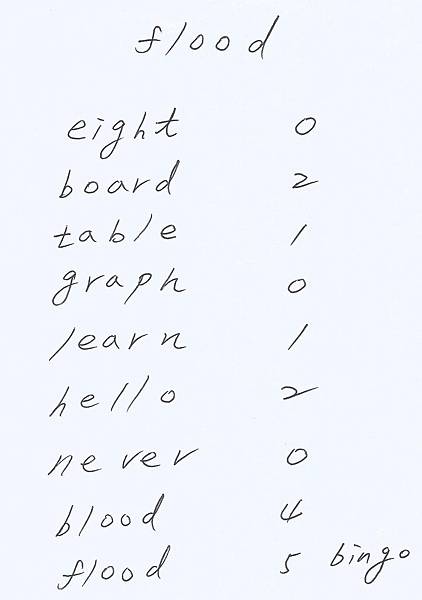 flood
eight 0
board 2
table 1
graph 0
learn 1
hello 2
never 0
blood 4
flood 5 bingo